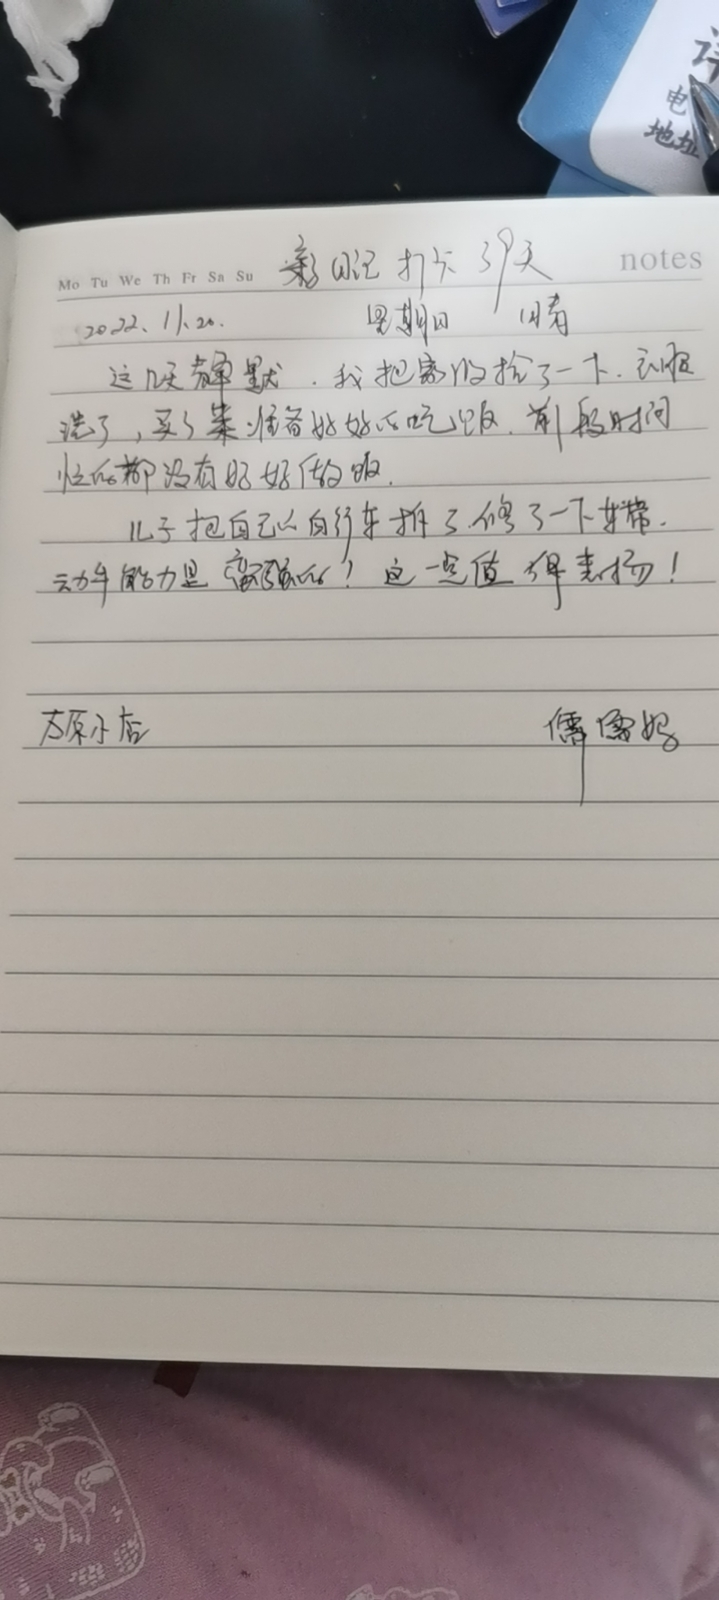 详
电
地址
Mo Tu We Th Fr Sa Su
日记打卡39天
notes
2022.11.20. 星期日 晴
这几天静默.我把家收拾了一下.衣服
洗了,买了菜准备好好的吃饭.前段时间
忙的都没有好好做饭.
儿子把自己的自行车拆了.修了一下车带.
动手能力是蛮强的!这一点值得表扬!
太原小店 儒儒妈